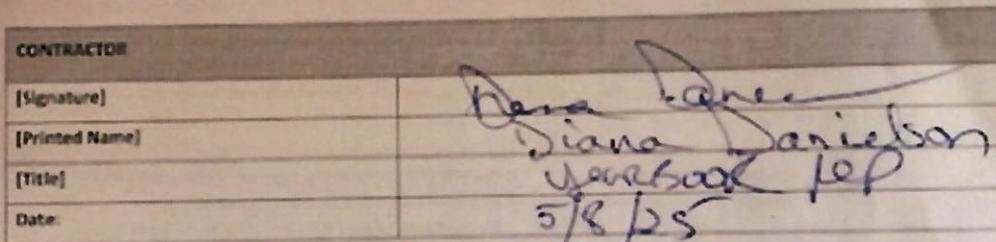 CONTRACTOR
[Signature]
[Printed Name] Diana Danielson
[Title] Yearbook Rep
Date: 5/8/25